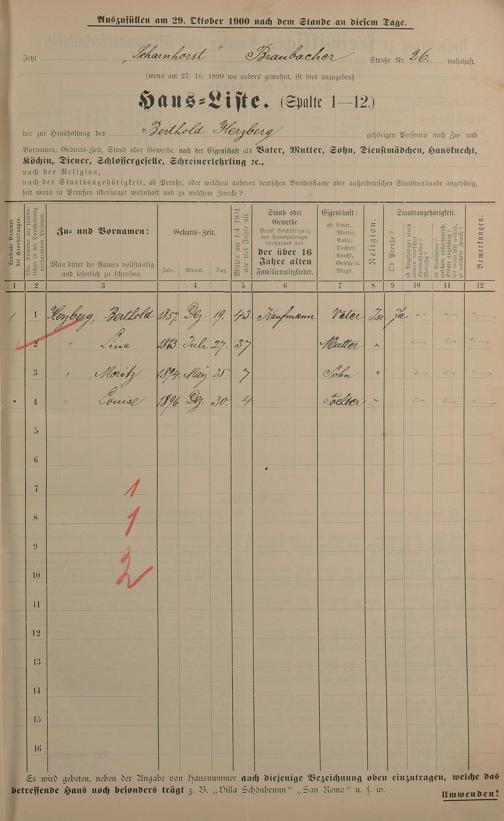 Auszufüllen am 29. Oktober 1900 nach dem Stande an diesem Tage.
Jetzt „Scharnhorst“ Braubacher Straße Nr. 26. wohnhaft.
(wenn am 27. 10. 1899 wo anders gewohnt, ist dies anzugeben)
Haus-Liste. (Spalte 1—12.)
der zur Haushaltung des Berthold Herzberg gehörigen Personen nach Zu- und
Vornamen, Geburts-Zeit, Stand oder Gewerbe, nach der Eigenschaft als Vater, Mutter, Sohn, Dienstmädchen, Hausknecht,
Köchin, Diener, Schlossergeselle, Schreinerlehrling ꝛc.,
nach der Religion,
nach der Staatsangehörigkeit, ob Preuße, oder welchem anderen deutschen Bundesstaate oder außerdeutschen Staatsverbande angehörig,
seit wann in Preußen überhaupt wohnhaft und zu welchem Zwecke?
Zu- und Vornamen:
Man bittet die Namen vollständig
und leserlich zu schreiben.
Geburts-Zeit.
Jahr. Monat. Tag.
Stand oder
Gewerbe
der über 16
Jahre alten
Familienmitglieder.
Eigenschaft:
ob Vater,
Mutter,
Sohn,
Tochter,
Knecht,
Geselle u.
Magd.
Religion.
Ob Preuße?
Staatsangehörigkeit.
Bemerkungen.
1 2 3 4 5 6 7 8 9 10 11 12
1 1 Herzberg, Berthold 1857 Dez. 19. 43 Kaufmann Vater Isr. Ja — — —
2 " Lina 1863 Juli 27. 37 Mutter " — — —
3 " Moritz 1894 May 25. 7 Sohn " — — —
4 " Louise 1896 Dez. 30. 4 Tochter " — — —
5
6
7 1
8 1
9
10 2
11
12
13
14
15
16
Es wird gebeten, neben der Angabe von Hausnummer auch diejenige Bezeichnung oben einzutragen, welche das
betreffende Haus noch besonders trägt z. B. „Villa Schönbrunn“ „San Remo“ u. s. w.
Umwenden!